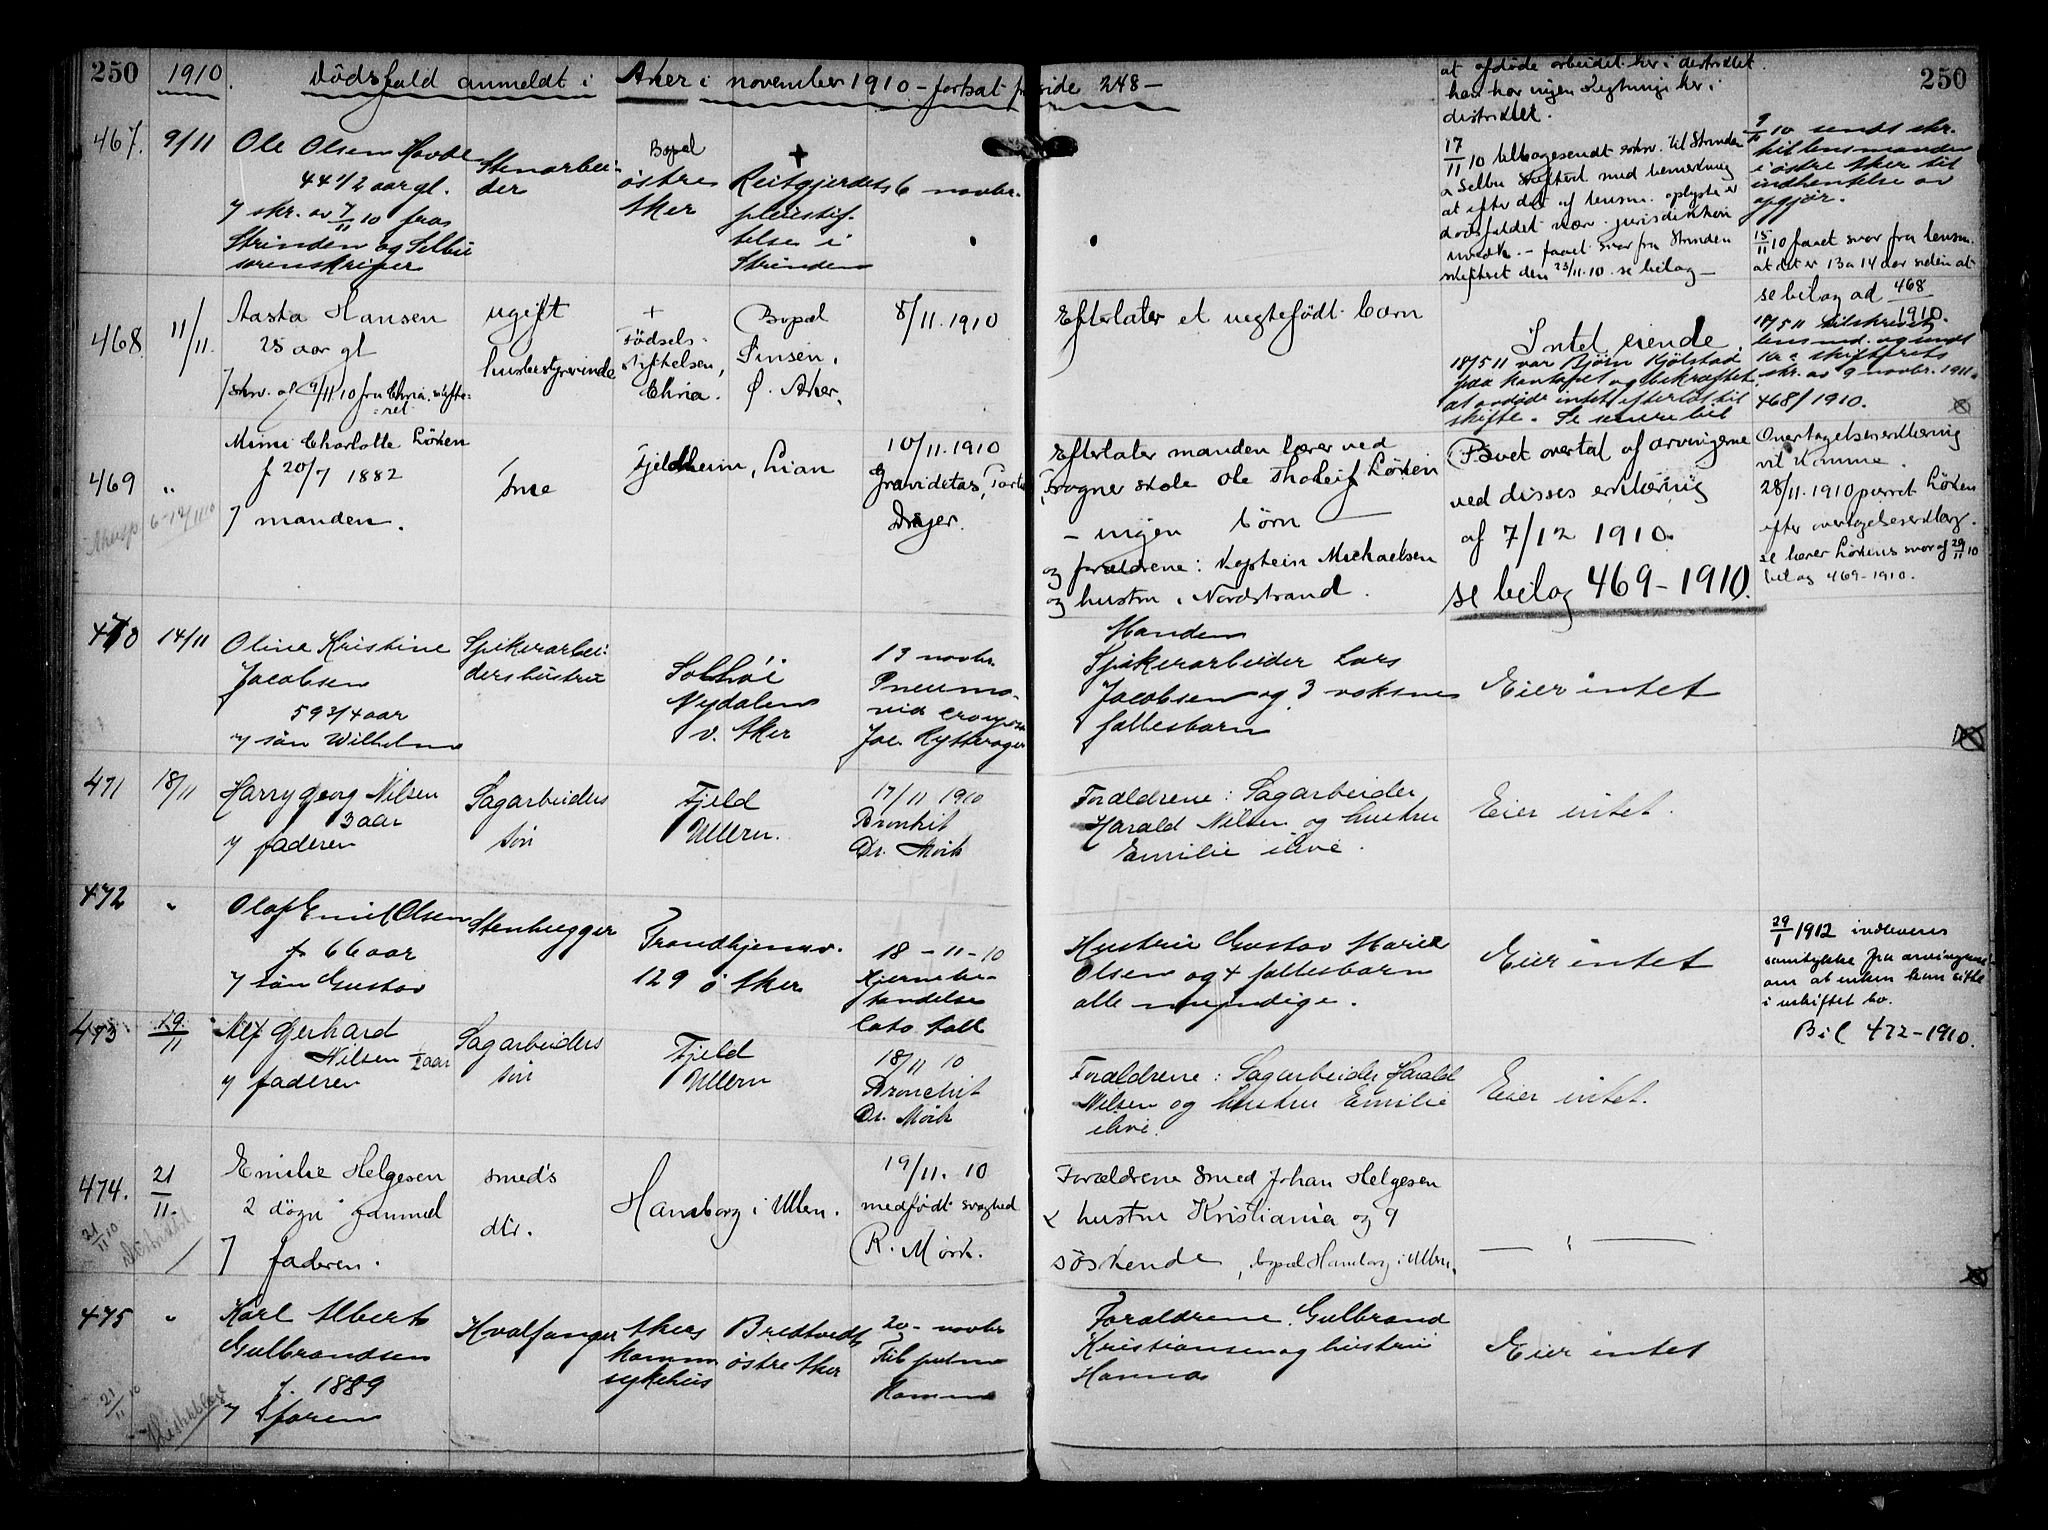 250 1910. Dödsfald anmeldt i Aker i november 1910 - fortsat side 248 -
at afdöde arbeidet her i destriktet.
han har ingen slegtninge her i
distriktet.
250
467. 9/11 Ole Olsen Hovde
44 1/2 aar gl.
7 skr. av 7/11 10 fra
Strinden og Selbu
sorenskriver
Stenarbei-
der
Bopæl
östre
Aker
+
Reitgjerdets
pleiestif-
telse i
Strinden
6 novbr.
17/11 10 tilbagesendt skr. til Strinden
& Selbu skifteret med bemerkning
at efter det af lensm. oplyste er
dödsfaldet jurisdiktion
uvedk. - faaet svar fra Strinden
skifteret den 23/11.10. se bilag -
9/11 10 sendt skr.
til lensmanden
i östre Aker til
indhentelse av
opgjör.
15/11 10 faaet svar fra lensm.
at det er 13 a 14 dar siden at
468 11/11. Aasta Hansen
25 aar gl
7 skr. af 9/11 10 fra Chria. skifte-
ret
ugift
husbestyrerinde
+
Födsels-
stiftelsen,
Chria.
Bopæl
Sinsen,
Ö. Aker.
8/11. 1910
Efterlater et uegtefödt barn
Intet eiende.
18/5 11 var Björn Kjölstad
paa kontoret og bekræftet
at avdöde intet efterlot til
skifte. Se senere bil
se bilag ad 468
1910.
18/5 11 tilskrevet
lensmd. og sendt
skifterets
skr. av 9 novbr. 1911.
468/1910.
469 " Mimi Charlotte Löken
f 20/7 1882
7 manden.
frue
Fjeldheim, Lian
10/11. 1910
Graviditas,
Efterlater manden lærer ved
Frogner skole Ole Tholeif Löken
- ingen börn
og foreldrene: Kaptein Michaelsen
og hustru, Nordstrand.
Boet overtat af arvingerne
ved disses erklæring
af 7/12 1910.
se bilag 469-1910.
Overtagelseserklæring
vil komme.
28/11. 1910 purret Löken
efter overtagelseserklærg.
se lærer Lökens svar af 29/11 10
bilag 469-1910.
470 14/11 Oline Kristine
Jacobsen
59 3/4 aar
7 sön Wilhelm
Spikerarbei-
dershustru
Solhöi
Nydalen
v. Aker
13 novbr.
Pneumo-
nia crouposa
Manden
Spikerarbeider Lars
Jacobsen og 3 voksne
fællesbarn
Eier intet
471 18/11 Harry Georg Nilsen
3 aar
7 faderen
Sagarbeiders
sön
Fjeld
Ullern.
17/11 1910
Bronkit
Dr. Mörk
Forældrene: Sagarbeider
Harald Nilsen og hustru
Emilie ilive.
Eier intet.
472 " Olaf Emil Olsen
66 aar
7 sön Gustav
Stenhugger
Trondhjemsv.
129 ö Aker
18-11-10
Hjernebe-
tændelse
Hustru Gustav Marie
Olsen og 4 fællesbarn
alle myndige.
Eier intet
29/1 1912 indleveres
samtykke fra arvingerne
om at enken kan sitte
i uskiftet bo.
Bil 472-1910.
473 19/11 Alf Gerhard
Nilsen 1/2 aar
7 faderen
Sagarbeiders
sön
Fjeld
Ullern
18/11 10
Bronchit
Dr. Mörk
Forældrene: Sagarbeider Harald
Nilsen og hustru Emilie
ilive.
Eier intet.
474. 21/11. Emilie Helgesen
2 dögn gammel
7 faderen.
21/11 10
smeds
dtr.
Hansborg i Ullern.
19/11. 10
medfödt svaghed
R. Mörk.
Forældrene Smed Johan Helgesen
& hustru Kristiania og 9
söskende, bopæl Hansborg i Ullern.
— " —
475 " Karl Albert
Gulbrandsen
f. 1889
7 Sforen
21/11 10
Hvalfanger
Akers
komm
sykehus
Bredtvedt
östre Aker
20 novbr
Foraldrene Gulbrand
Kristiansen og hustru
Hanna
Eier intet